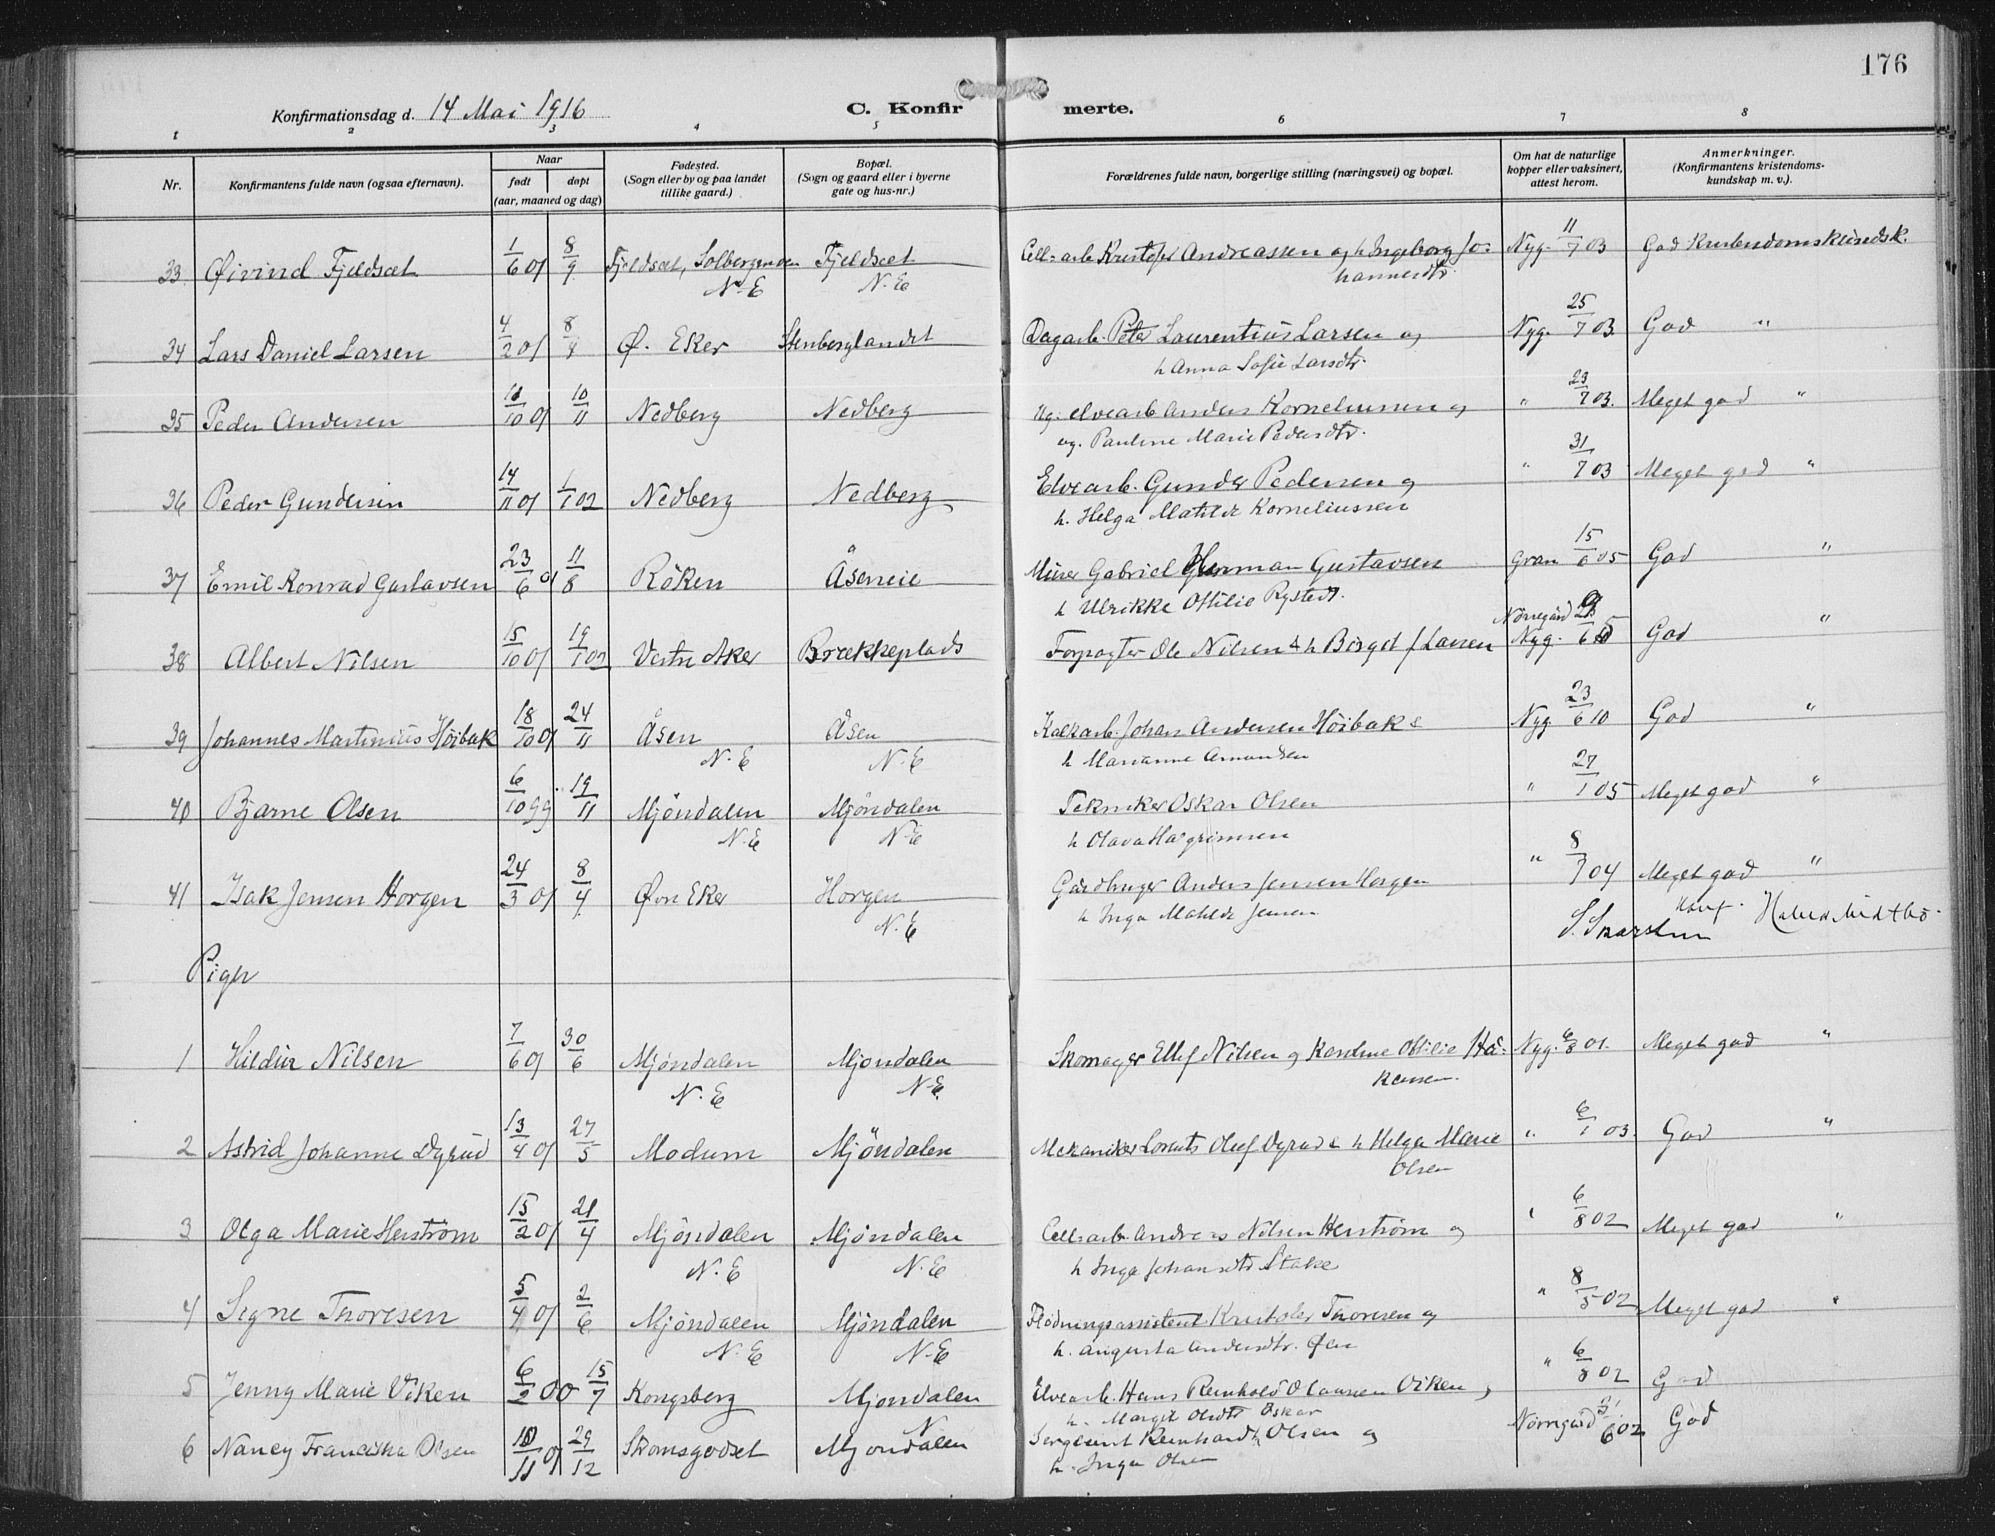 176
Konfirmationsdag d. 14 Mai 1916
C. Konfirmerte.
1 2 3 4 5 6 7 8
Nr.
Konfirmantens fulde navn (ogsaa efternavn).
Naar
født døpt
(aar, maaned og dag)
Fødested.
(Sogn eller by og paa landet
tillike gaard.)
Bopæl.
(Sogn og gaard eller i byerne
gate og hus-nr.)
Forældrenes fulde navn, borgerlige stilling (næringsvei) og bopæl.
Om hat de naturlige
kopper eller vaksinert,
attest herom.
Anmerkninger.
(Konfirmantens kristendoms-
kundskap m. v.).
33 Øivind Fjeldsæt 1/6 01 8/9 Fjeldsæt, Solbergen Fjeldsæt Cell-arb. Kristofer Andreassen og h Ingeborg Jo- Nyg. 11/7 03 God Kristendomskundsk.
N-E N.E hannesdtr.
34 Lars Daniel Larsen 4/2 01 8/4 Ø. Eker Stenberglandet Dagarb. Peter Laurentius Larsen og Nyg. 25/7 03 God "
h Anna Sofie Larsdtr.
35 Peder Andersen 10/10 01 10/11 Nedberg Nedberg Ug. elvearb Anders Korneliussen og " 23/7 03. Meget god "
ug. Pauline Marie Pedersdtr.
36 Peder Gundersen 14/11 01 1/1 02 Nedberg Nedberg Elvearb. Gunder Pedersen og " 31/7 03 Meget god "
h. Helga Matilde Korneliussen
37 Emil Konrad Gustavsen 23/6 01 11/8 Röken Åseneie Murer Gabriel Herman Gustavsen Gran 15/6 05 God "
h Ulrikke Ottilie Rystedt.
38 Albert Nilsen 15/10 01 19/1 02 Vestre Aker Brækkeplads Forpagter Ole Nilsen & h Birget f Larsen Nörregård Nyg. God "
39 Johannes Martinius Höibak 18/10 01 24/11 Åsen Åsen Kalkarb. Johan Andersen Höibak & Nyg 23/6 10 God "
N.E N.E h Marianne Amundsen
40 Bjarne Olsen 6/10 99 19/11 Mjöndalen Mjöndalen Tekniker Oskar Olsen " 27/1 05 Meget god "
N.E N.E h Olava Halgrimsen
41 Isak Jensen Horgen 24/3 01 8/4 Øvre Eker Horgen Gårdbruger Anders Jensen Horgen " 8/7 04 Meget god "
N.E h Inga Matilde Jensen
Piger
1 Hildur Nilsen 7/6 01 30/6 Mjøndalen Mjøndalen Skomager Ellef Nilsen og Karoline Ottilie Hå- Nyg. 6/8 01. Meget god "
N.E N.E kensen.
2 Astrid Johanne Dyrud 13/4 01 27/5 Modum Mjöndalen Mekaniker Lorents Oluf Dyrud & h Helga Marie " 6/1 03. God "
Olsen
3 Olga Marie Herström 15/2 01 21/4 Mjöndalen Mjöndalen Cell-arb. Andreas Nilsen Herström og " 6/8 02 Meget god "
N.E N.E h Inga Johansdtr Stake
4 Signe Thoresen 5/4 01 2/6 Mjöndalen Mjöndalen Flödningsassistent Kristofer Thoresen og " 8/5 02 Meget god "
N.E N.E h. Augusta Andersdtr. Øen
5 Jenny Marie Viken 6/2 00 15/7 Kongsberg Mjöndalen Elvearb. Hans Reinhold Olaussen Viken og " 6/8 02 God
h. Margit Olsdtr Oskar
6 Nancy Franciska Olsen 10/11 01 29/12 Skomsgodset Mjondalen Sergeant Reinhardt Olsen og Nörregård God
h. Inga Olsen